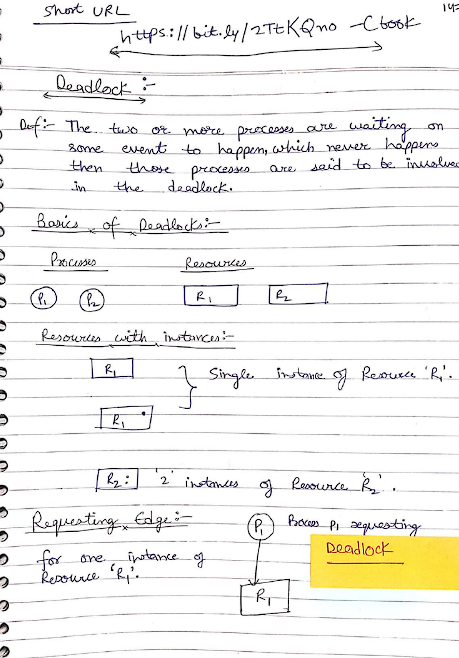 Short URL
https://bit.ly/2TtKQno -Cbook
Deadlock :-
Def:- The two or more processes are waiting on
some event to happen, which never happens
then those processes are said to be involved
in the deadlock.
Basics of Deadlocks:-
Processes Resources
P1 P2 R1 R2
Resources with instances:-
R1
Single instance of Resource 'R1'.
R1
R2: '2' instances of Resource 'R2'.
Requesting Edge:-
P1 Process P1 requesting
for one instance of
Resource 'R1'.
Deadlock
R1